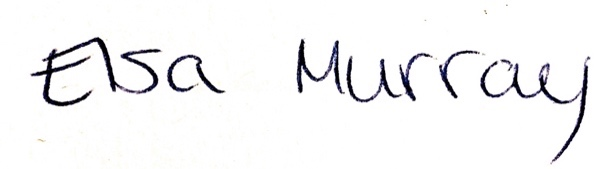 Elsa Murray